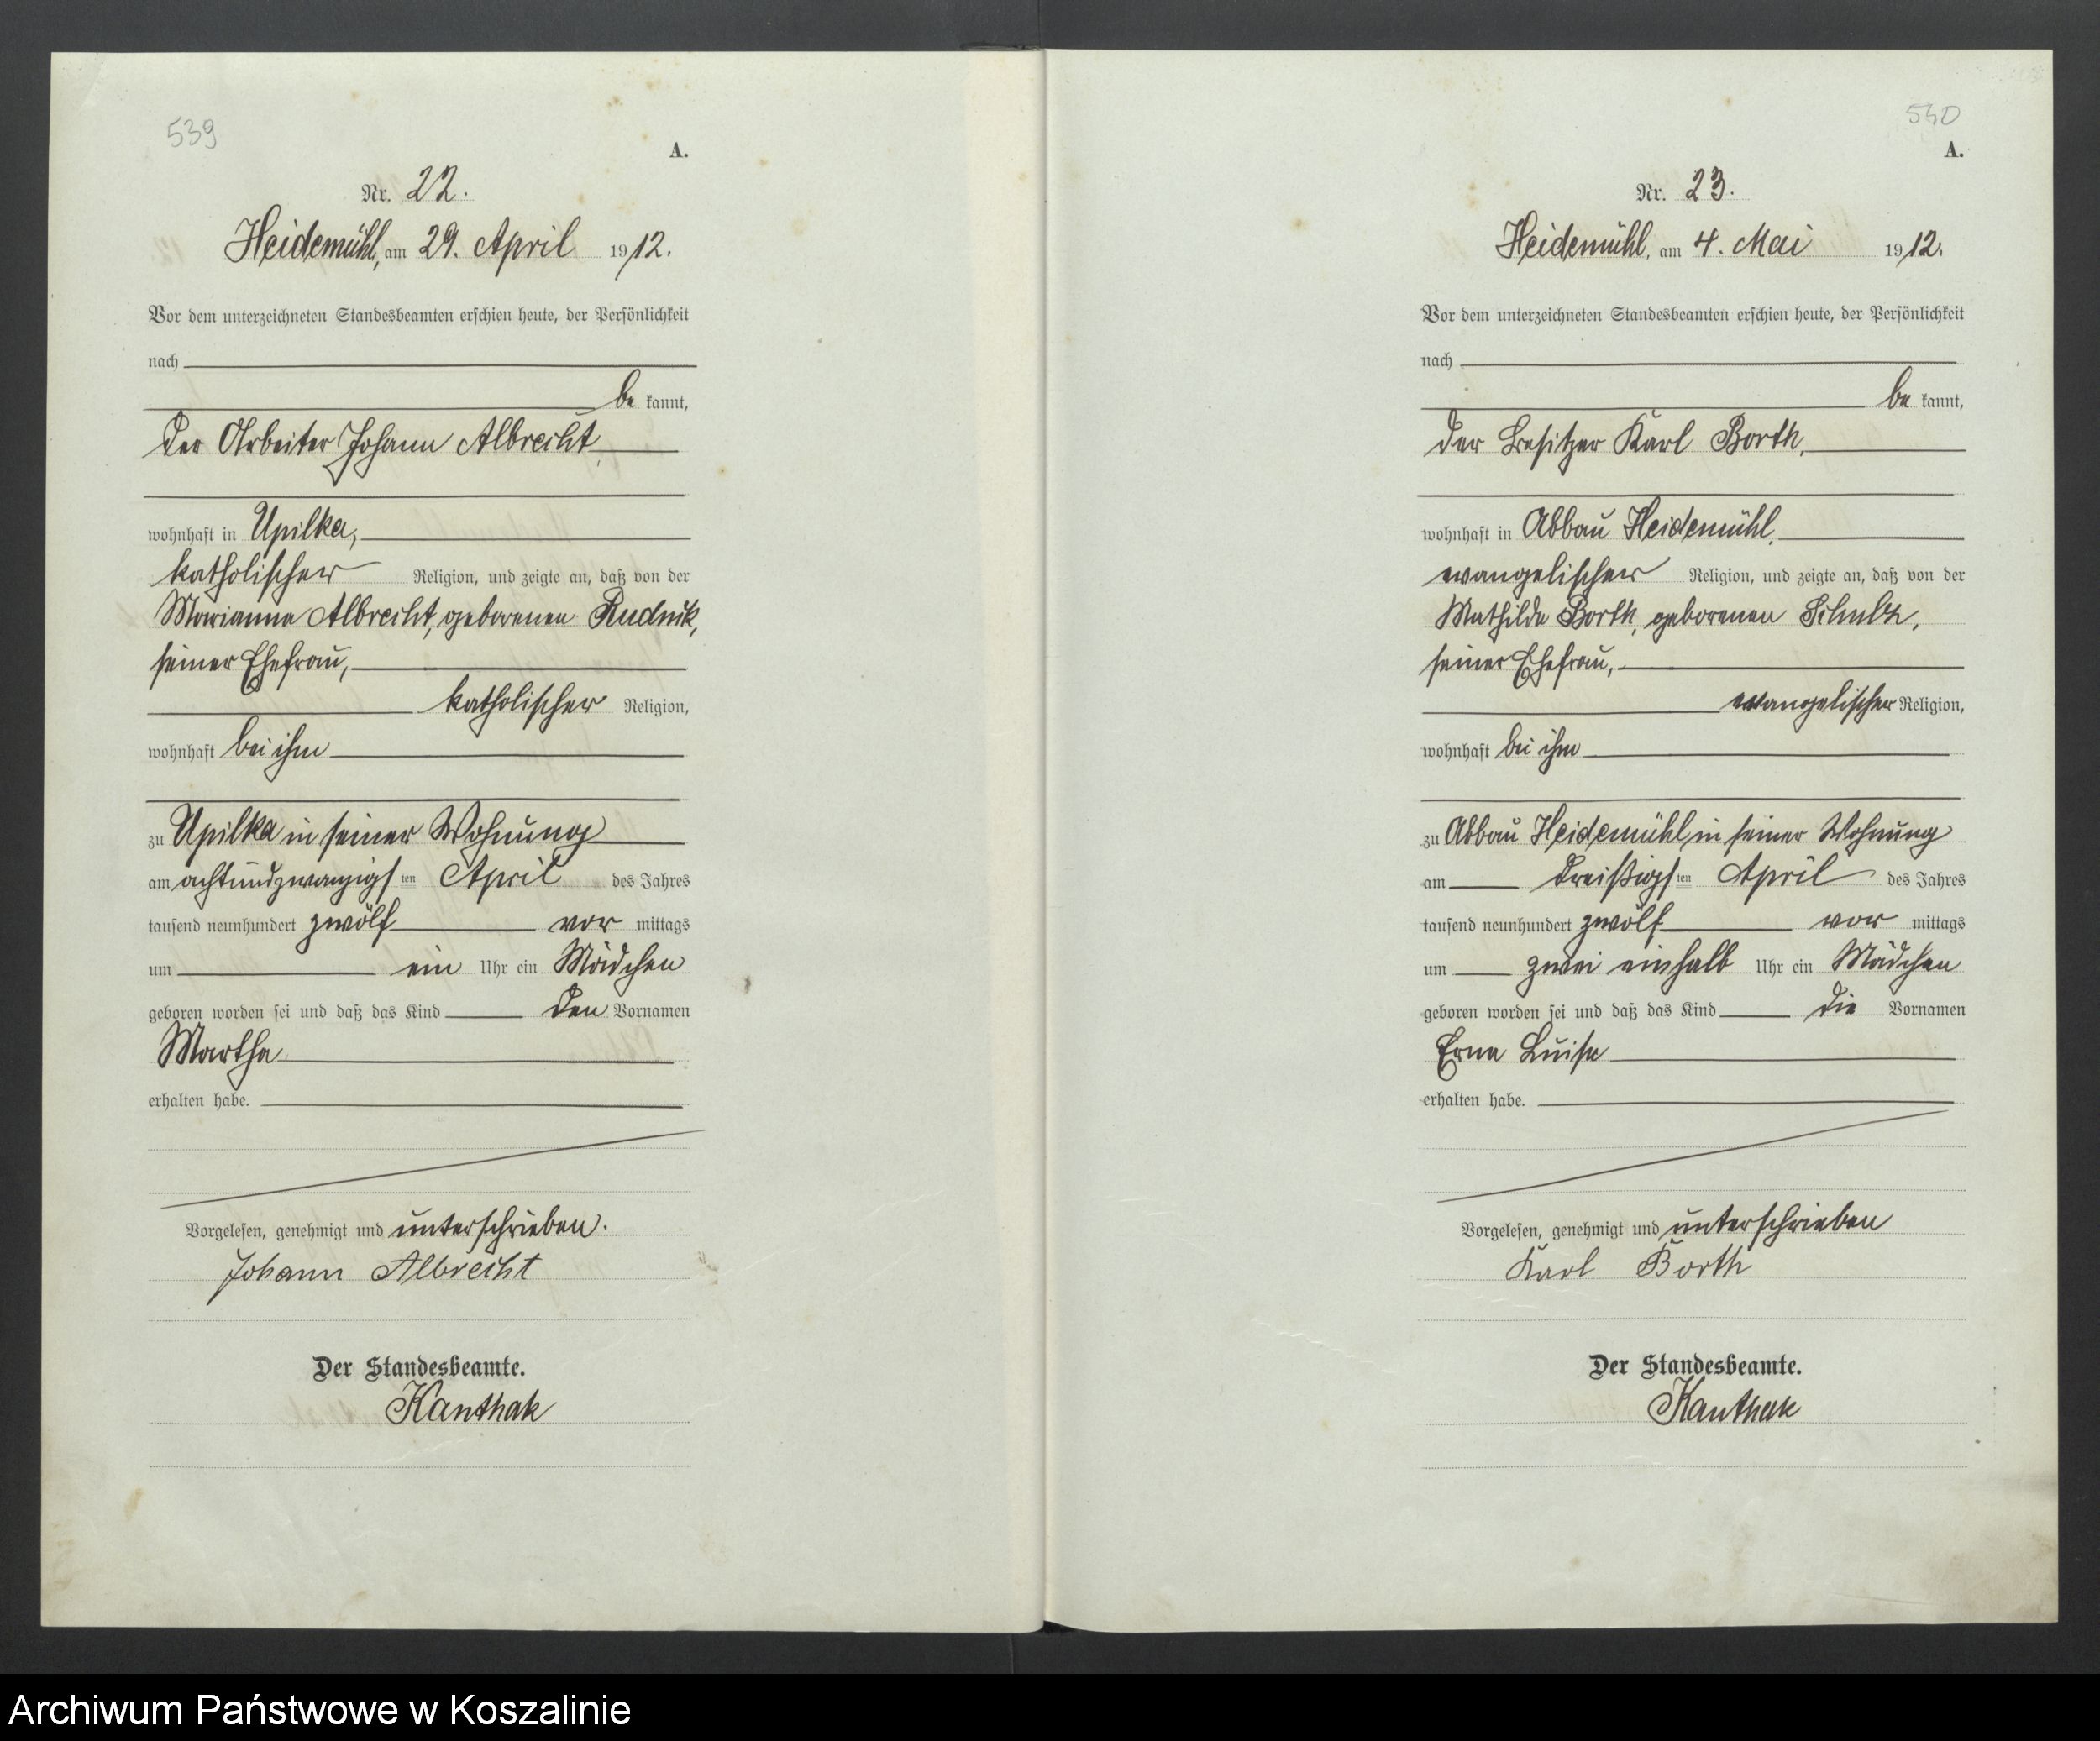 539
A.
Nr. 22.
Heidemühl, am 29. April 1912.
Vor dem unterzeichneten Standesbeamten erschien heute, der Persönlichkeit
nach
be kannt,
der Arbeiter Johann Albrecht
wohnhaft in Upilka,
katholischer Religion, und zeigte an, daß von der
Marianna Albrecht, geborenen Rudnik,
seiner Ehefrau,
katholischer Religion,
wohnhaft bei ihm
zu Upilka in seiner Wohnung
am achtundzwanzigsten April des Jahres
tausend neunhundert zwölf vor mittags
um ein Uhr ein Mädchen
geboren worden sei und daß das Kind den Vornamen
Martha
erhalten habe.
Vorgelesen, genehmigt und unterschrieben.
Johann Albrecht
Der Standesbeamte.
Kanthak
540
A.
Nr. 23.
Heidemühl, am 4. Mai 1912.
Vor dem unterzeichneten Standesbeamten erschien heute, der Persönlichkeit
nach
be kannt,
der Besitzer Karl Borth,
wohnhaft in Abbau Heidemühl,
evangelischer Religion, und zeigte an, daß von der
Mathilde Borth, geborenen Schultz,
seiner Ehefrau,
evangelischer Religion,
wohnhaft bei ihm
zu Abbau Heidemühl in seiner Wohnung
am dreißigsten April des Jahres
tausend neunhundert zwölf vor mittags
um zwei einhalb Uhr ein Mädchen
geboren worden sei und daß das Kind die Vornamen
Erna Luise
erhalten habe.
Vorgelesen, genehmigt und unterschrieben
Karl Borth
Der Standesbeamte.
Kanthak
Archiwum Państwowe w Koszalinie